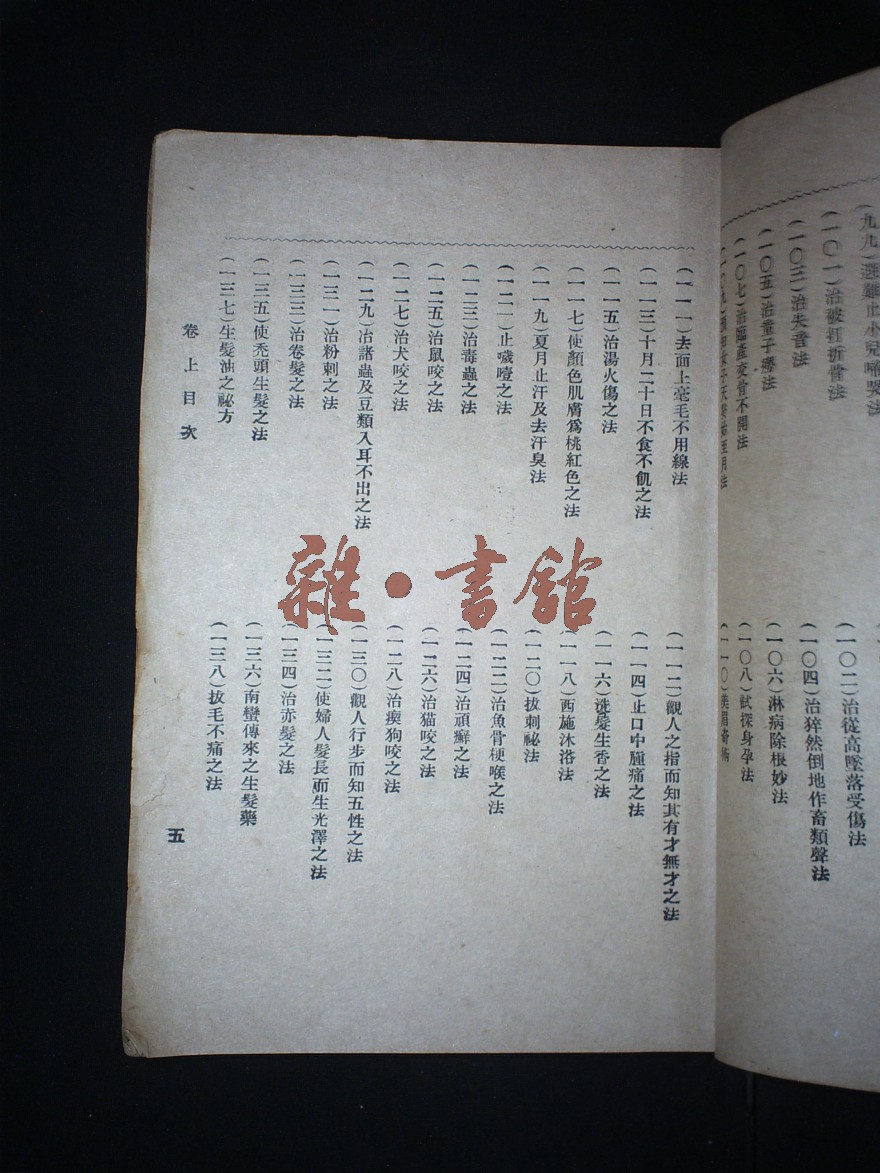 九九）遇難止小兒啼哭法
（一〇一）治被打折骨法
（一〇二）治從高墜落受傷法
（一〇三）治失音法
（一〇四）治猝然倒地作畜類聲法
（一〇五）治童子癆法
（一〇六）淋病除根妙法
（一〇七）治臨產交骨不開法
（一〇八）試探身孕法
（一一〇）美眉奇術
（一一一）去面上毫毛不用線法
（一一二）觀人之指而知其有才無才之法
（一一三）十月二十日不食不飢之法
（一一四）止口中腫痛之法
（一一五）治湯火傷之法
（一一六）洗髮生香之法
（一一七）使顏色肌膚爲桃紅色之法
（一一八）西施沐浴法
（一一九）夏月止汗及去汗臭法
（一二〇）拔刺祕法
（一二一）止噦噎之法
（一二二）治魚骨梗喉之法
（一二三）治毒蟲之法
（一二四）治頑癬之法
（一二五）治鼠咬之法
（一二六）治猫咬之法
（一二七）治犬咬之法
（一二八）治瘐狗咬之法
（一二九）治諸蟲及豆類入耳不出之法
（一三〇）觀人行步而知五性之法
（一三一）治粉刺之法
（一三二）使婦人髮長而生光澤之法
（一三三）治卷髮之法
（一三四）治赤髮之法
（一三五）使禿頭生髮之法
（一三六）南蠻傳來之生髮藥
（一三七）生髮油之祕方
（一三八）拔毛不痛之法
卷上目次
五
雜·書館